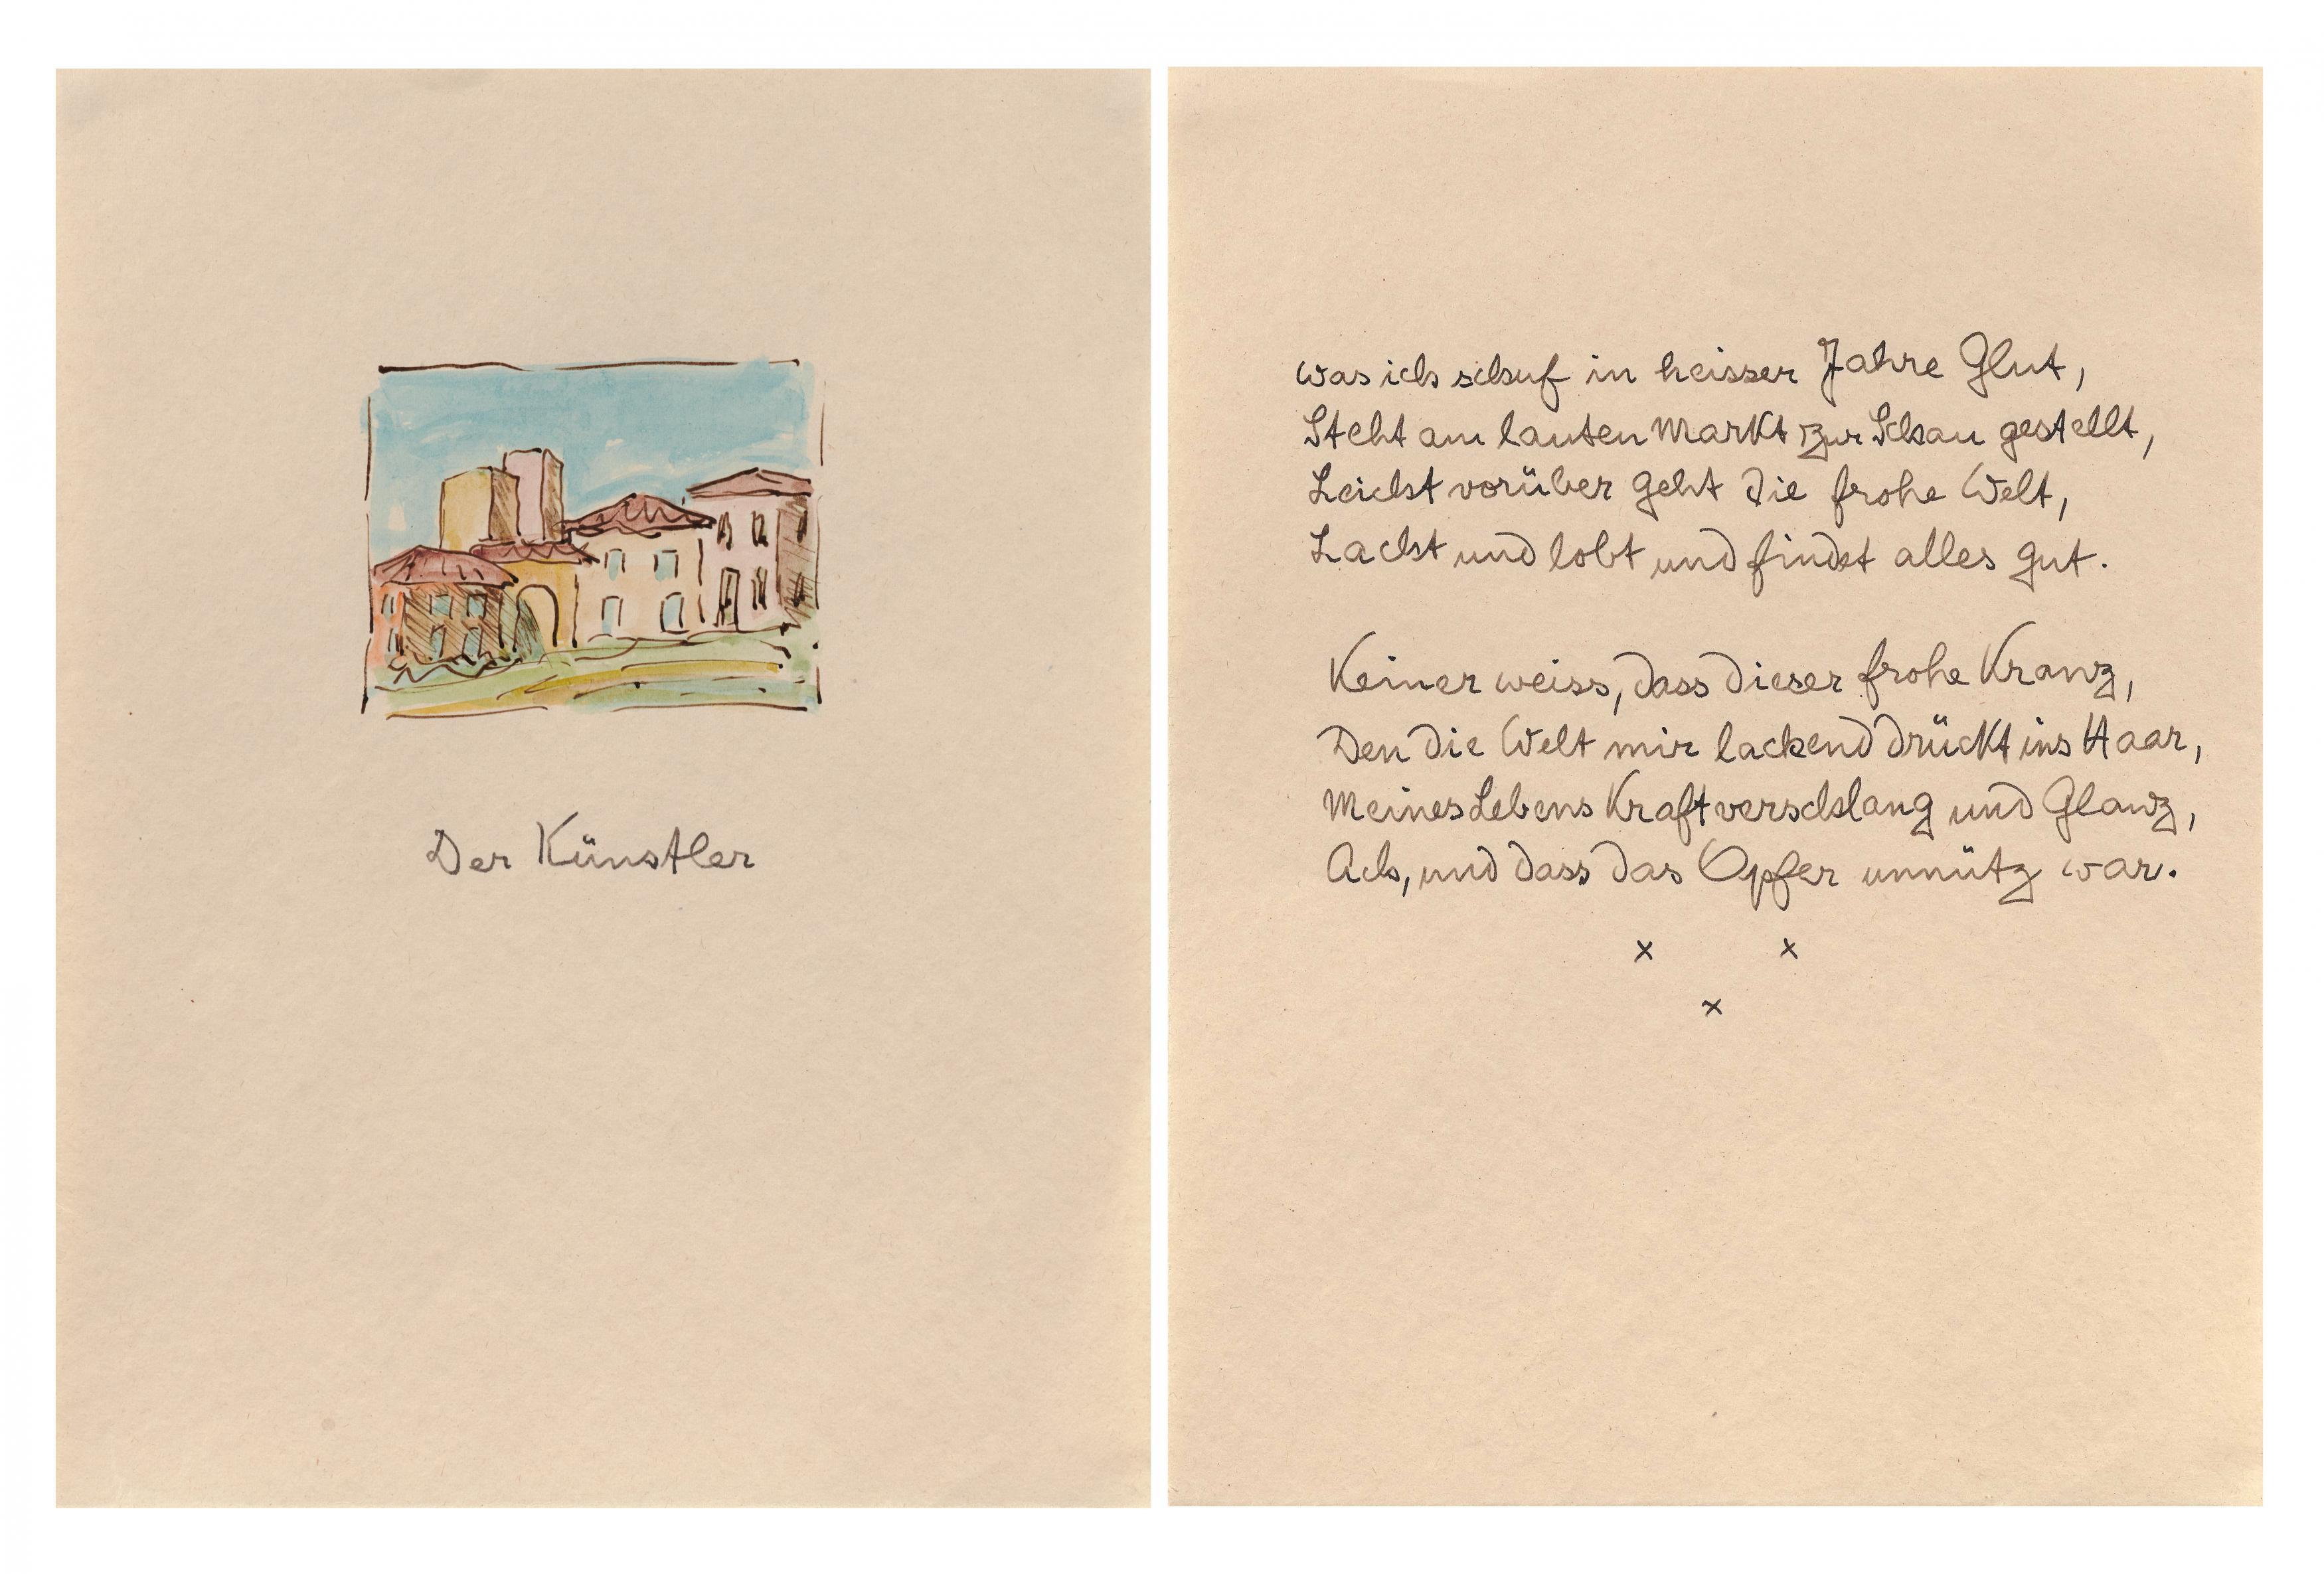 Der Künstler
Was ich schuf in heisser Jahre Glut,
Steht am lauten Markt zur Schau gestellt,
Leicht vorüber geht die frohe Welt,
Lacht und lobt und findet alles gut.
Keiner weiss, dass dieser frohe Kranz,
Den die Welt mir lachend drückt ins Haar,
Meines Lebens Kraft verschlang und Glanz,
Ach, und dass das Opfer unnütz war.
x x
x